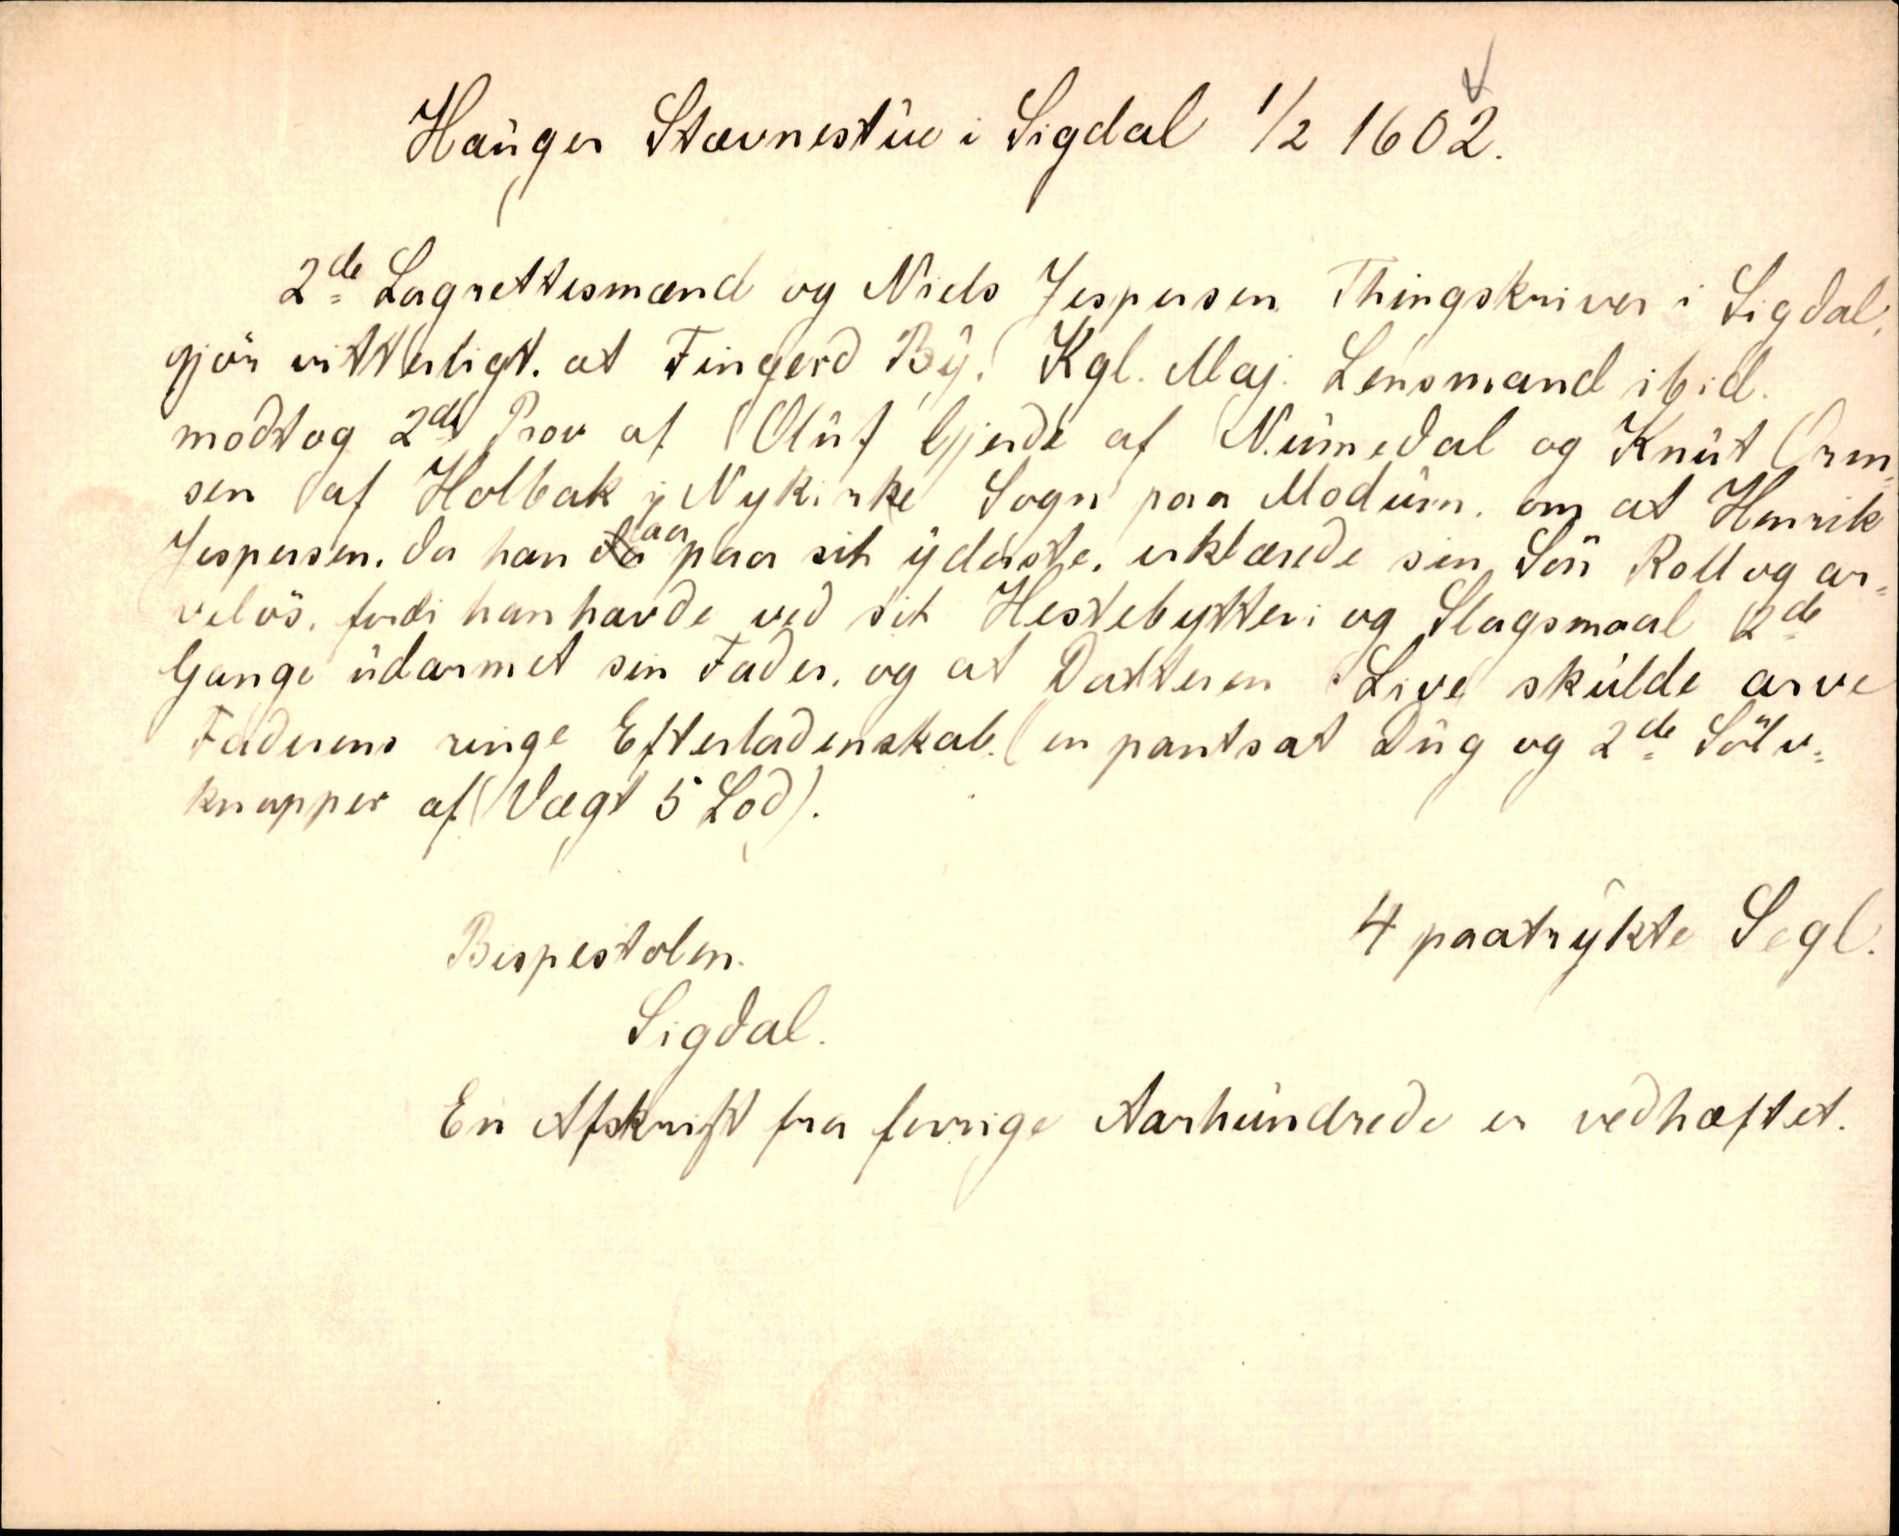 Hauger Stævnestue i Sigdal 1/2 1602.
2de Lagrettesmænd og Niels Jespersen Thingskriver i Sigdal,
gjör vitterligt. at Fingerd By. Kgl. Maj. Lensmand ibid.
modtog 2de Prov af Oluf Gjerde af Numedal og Knut Orm=
sen af Holbak i Nykirke Sogn paa Modum. om at Henrik
Jespersen. da han laa paa sit yderste. erklærede sin Sön Roll og ar=
velös. fordi han havde ved sit Hestebytteri og Slagsmaal 2de
Gange udarmet sin Fader. og at Datteren Live skulde arve
Faderens ringe Efterladenskab. (en pantsat Dug og 2de Sölv=
knapper af Vægt 5 Lod).
4 paatrykte Segl.
Bispestolen.
Sigdal.
En Afskrift fra forrige Aarhundrede er vedhæftet.